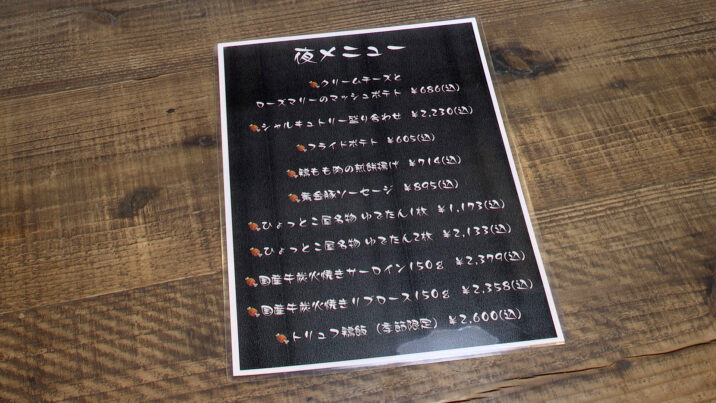 夜メニュー
クリームチーズと
ローズマリーのマッシュポテト ¥686(込)
シャルキュトリー盛り合わせ ¥2,230(込)
フライドポテト ¥605(込)
鶏ももめの煎餅揚げ ¥714(込)
黄金豚ソーセージ ¥895(込)
ひょっとこ屋名物 ゆでたん1枚 ¥1,173(込)
ひょっとこ屋名物 ゆでたん2枚 ¥2,133(込)
国産牛炭火焼きサーロイン150g ¥2,379(込)
国産牛炭火焼きリブロース150g ¥2,358(込)
トリュフ鶏飯(季節限定) ¥2,600(込)